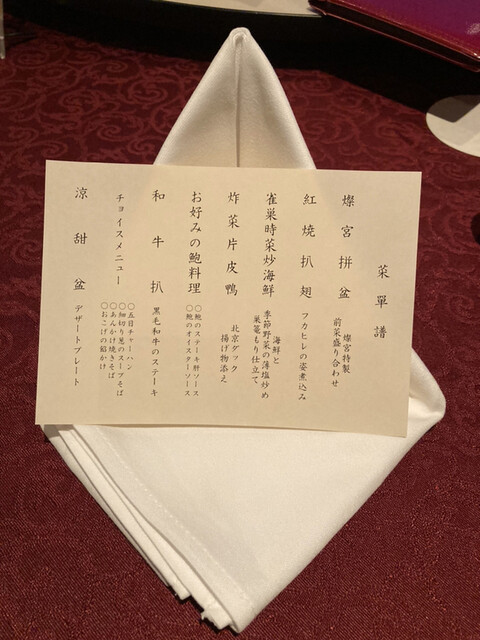 菜單譜
燦宮拼盆
燦宮特製
前菜盛り合わせ
紅燒扒翅
フカヒレの姿煮込み
雀巣時菜炒海鮮
海鮮と
季節野菜の薄塩炒め
巣篭もり仕立て
炸菜片皮鴨
北京ダック
揚げ物添え
お好みの鮑料理
○鮑のステーキ肝ソース
○鮑のオイスターソース
和牛扒
黒毛和牛のステーキ
チョイスメニュー
○五目チャーハン
○細切り葱のスープそば
○あんかけ焼きそば
○おこげの餡かけ
涼甜盆
デザートプレート